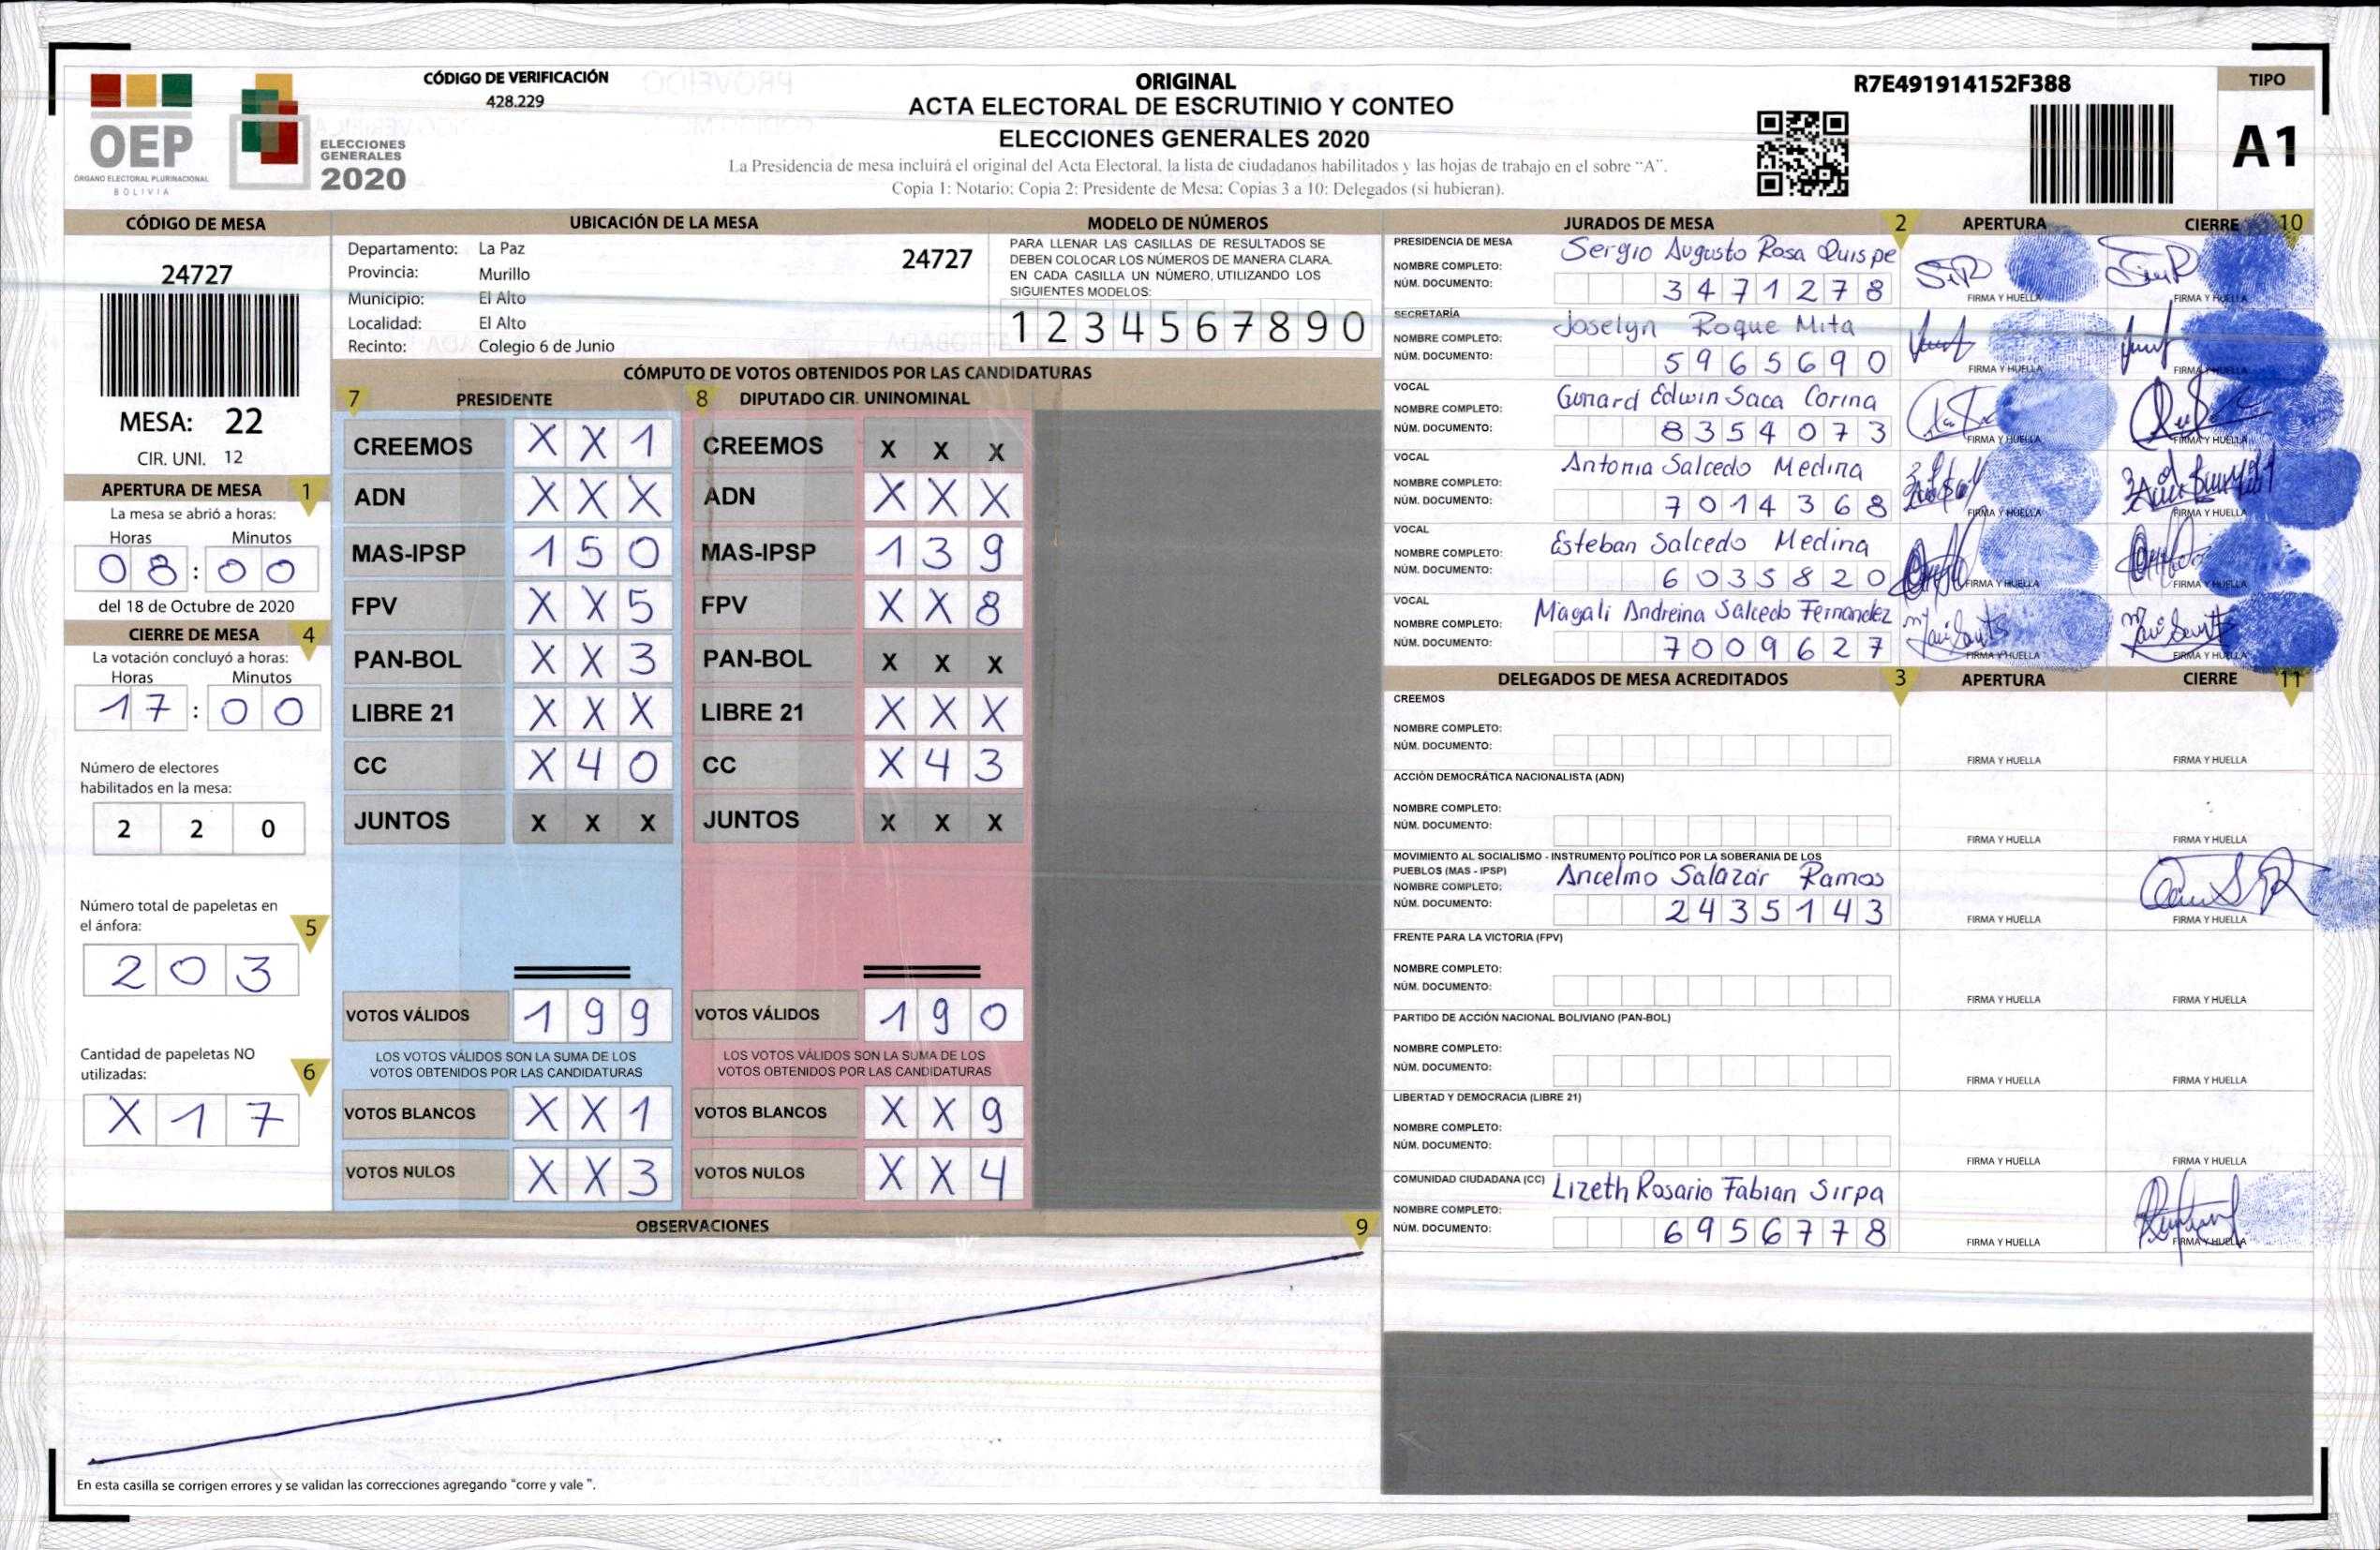 OEP
ÓRGANO ELECTORAL PLURINACIONAL
BOLIVIA
ELECCIONES
GENERALES
2020
CÓDIGO DE VERIFICACIÓN
428.229
ORIGINAL
ACTA ELECTORAL DE ESCRUTINIO Y CONTEO
ELECCIONES GENERALES 2020
La Presidencia de mesa incluirá el original del Acta Electoral, la lista de ciudadanos habilitados y las hojas de trabajo en el sobre “A”.
Copia 1: Notario; Copia 2: Presidente de Mesa; Copias 3 a 10: Delegados (si hubieran).
R7E491914152F388
TIPO
A1
CÓDIGO DE MESA
24727
MESA: 22
CIR. UNI. 12
APERTURA DE MESA 1
La mesa se abrió a horas:
Horas Minutos
08:00
del 18 de Octubre de 2020
CIERRE DE MESA 4
La votación concluyó a horas:
Horas Minutos
17:00
Número de electores
habilitados en la mesa:
2 2 0
Número total de papeletas en
el ánfora: 5
2 0 3
Cantidad de papeletas NO
utilizadas: 6
X 1 7
UBICACIÓN DE LA MESA
Departamento: La Paz 24727
Provincia: Murillo
Municipio: El Alto
Localidad: El Alto
Recinto: Colegio 6 de Junio
MODELO DE NÚMEROS
PARA LLENAR LAS CASILLAS DE RESULTADOS SE
DEBEN COLOCAR LOS NÚMEROS DE MANERA CLARA.
EN CADA CASILLA UN NÚMERO, UTILIZANDO LOS
SIGUIENTES MODELOS:
1 2 3 4 5 6 7 8 9 0
CÓMPUTO DE VOTOS OBTENIDOS POR LAS CANDIDATURAS
7 PRESIDENTE 8 DIPUTADO CIR. UNINOMINAL
CREEMOS X X 1 CREEMOS X X X
ADN X X X ADN X X X
MAS-IPSP 1 5 0 MAS-IPSP 1 3 9
FPV X X 5 FPV X X 8
PAN-BOL X X 3 PAN-BOL X X X
LIBRE 21 X X X LIBRE 21 X X X
CC X 4 0 CC X 4 3
JUNTOS X X X JUNTOS X X X
VOTOS VÁLIDOS 1 9 9 VOTOS VÁLIDOS 1 9 0
LOS VOTOS VÁLIDOS SON LA SUMA DE LOS LOS VOTOS VÁLIDOS SON LA SUMA DE LOS
VOTOS OBTENIDOS POR LAS CANDIDATURAS VOTOS OBTENIDOS POR LAS CANDIDATURAS
VOTOS BLANCOS X X 1 VOTOS BLANCOS X X 9
VOTOS NULOS X X 3 VOTOS NULOS X X 4
OBSERVACIONES 9
En esta casilla se corrigen errores y se validan las correcciones agregando “corre y vale ”.
JURADOS DE MESA 2 APERTURA CIERRE 10
PRESIDENCIA DE MESA
NOMBRE COMPLETO: Sergio Augusto Rosa Quispe
NÚM. DOCUMENTO: 3471278
FIRMA Y HUELLA FIRMA Y HUELLA
SECRETARÍA
NOMBRE COMPLETO: Joselyn Roque Mita
NÚM. DOCUMENTO: 5965690
FIRMA Y HUELLA FIRMA Y HUELLA
VOCAL
NOMBRE COMPLETO: Gunard Edwin Saca Corina
NÚM. DOCUMENTO: 8354073
FIRMA Y HUELLA FIRMA Y HUELLA
VOCAL
NOMBRE COMPLETO: Antonia Salcedo Medina
NÚM. DOCUMENTO: 7014368
FIRMA Y HUELLA FIRMA Y HUELLA
VOCAL
NOMBRE COMPLETO: Esteban Salcedo Medina
NÚM. DOCUMENTO: 6035820
FIRMA Y HUELLA FIRMA Y HUELLA
VOCAL
NOMBRE COMPLETO: Magali Andreina Salcedo Fernandez
NÚM. DOCUMENTO: 7009627
FIRMA Y HUELLA FIRMA Y HUELLA
DELEGADOS DE MESA ACREDITADOS 3 APERTURA CIERRE 11
CREEMOS
NOMBRE COMPLETO:
NÚM. DOCUMENTO:
FIRMA Y HUELLA FIRMA Y HUELLA
ACCIÓN DEMOCRÁTICA NACIONALISTA (ADN)
NOMBRE COMPLETO:
NÚM. DOCUMENTO:
FIRMA Y HUELLA FIRMA Y HUELLA
MOVIMIENTO AL SOCIALISMO - INSTRUMENTO POLÍTICO POR LA SOBERANIA DE LOS
PUEBLOS (MAS - IPSP)
NOMBRE COMPLETO: Ancelmo Salazar Ramos
NÚM. DOCUMENTO: 2435143
FIRMA Y HUELLA FIRMA Y HUELLA
FRENTE PARA LA VICTORIA (FPV)
NOMBRE COMPLETO:
NÚM. DOCUMENTO:
FIRMA Y HUELLA FIRMA Y HUELLA
PARTIDO DE ACCIÓN NACIONAL BOLIVIANO (PAN-BOL)
NOMBRE COMPLETO:
NÚM. DOCUMENTO:
FIRMA Y HUELLA FIRMA Y HUELLA
LIBERTAD Y DEMOCRACIA (LIBRE 21)
NOMBRE COMPLETO:
NÚM. DOCUMENTO:
FIRMA Y HUELLA FIRMA Y HUELLA
COMUNIDAD CIUDADANA (CC)
NOMBRE COMPLETO: Lizeth Rosario Fabian Sirpa
NÚM. DOCUMENTO: 6956778
FIRMA Y HUELLA FIRMA Y HUELLA